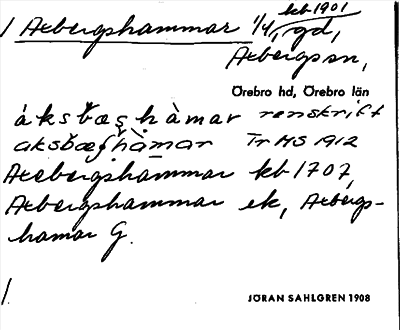 kb 1901
1 Axbergshammar 1/4, gd,
Axbergs sn,
Örebro hd, Örebro län
áksbæṣhàmar renskrift
aksbæʃhàmar Tr MS 1912
Axebergshammar kb 1707,
Axbergshammar ek, Axbergs-
hamar G.
1.
JÖRAN SAHLGREN 1908